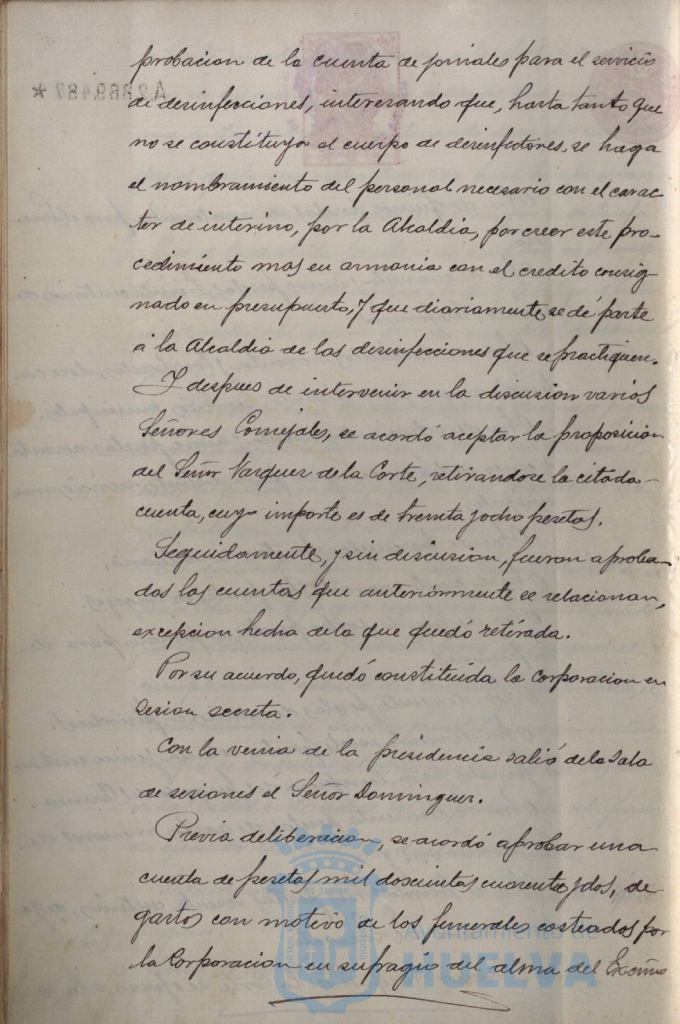 probacion de la cuenta de jornales para el servicio
de desinfecciones, interesando que, hasta tanto que
no se constituya el cuerpo de desinfectores, se haga
el nombramiento del personal necesario con el carac-
ter de interino, por la Alcaldia, por creer este pro-
cedimiento mas en armonia con el credito consig-
nado en presupuesto, y que diariamente se dé parte
á la Alcaldia de las desinfecciones que se practiquen.
Y despues de intervenir en la discusion varios
Señores Concejales, se acordó aceptar la proposicion
del Señor Vazquez de la Corte, retirandose la citada
cuenta, cuyo importe es de treinta y ocho pesetas.
Seguidamente, y sin discusion, fueron aproba-
das las cuentas que anteriormente se relacionan,
excepcion hecha de la que quedó retirada.
Por su acuerdo, quedó constituida la Corporacion en
sesion secreta.
Con la venia de la presidencia salió de la Sala
de sesiones el Señor Dominguez.
Previa deliberacion, se acordó aprobar una
cuenta de pesetas mil doscientas cuarenta y dos, de
gastos con motivo de los funerales costeados por
la Corporacion en sufragio del alma del Excmo
Ayuntamiento de
HUELVA